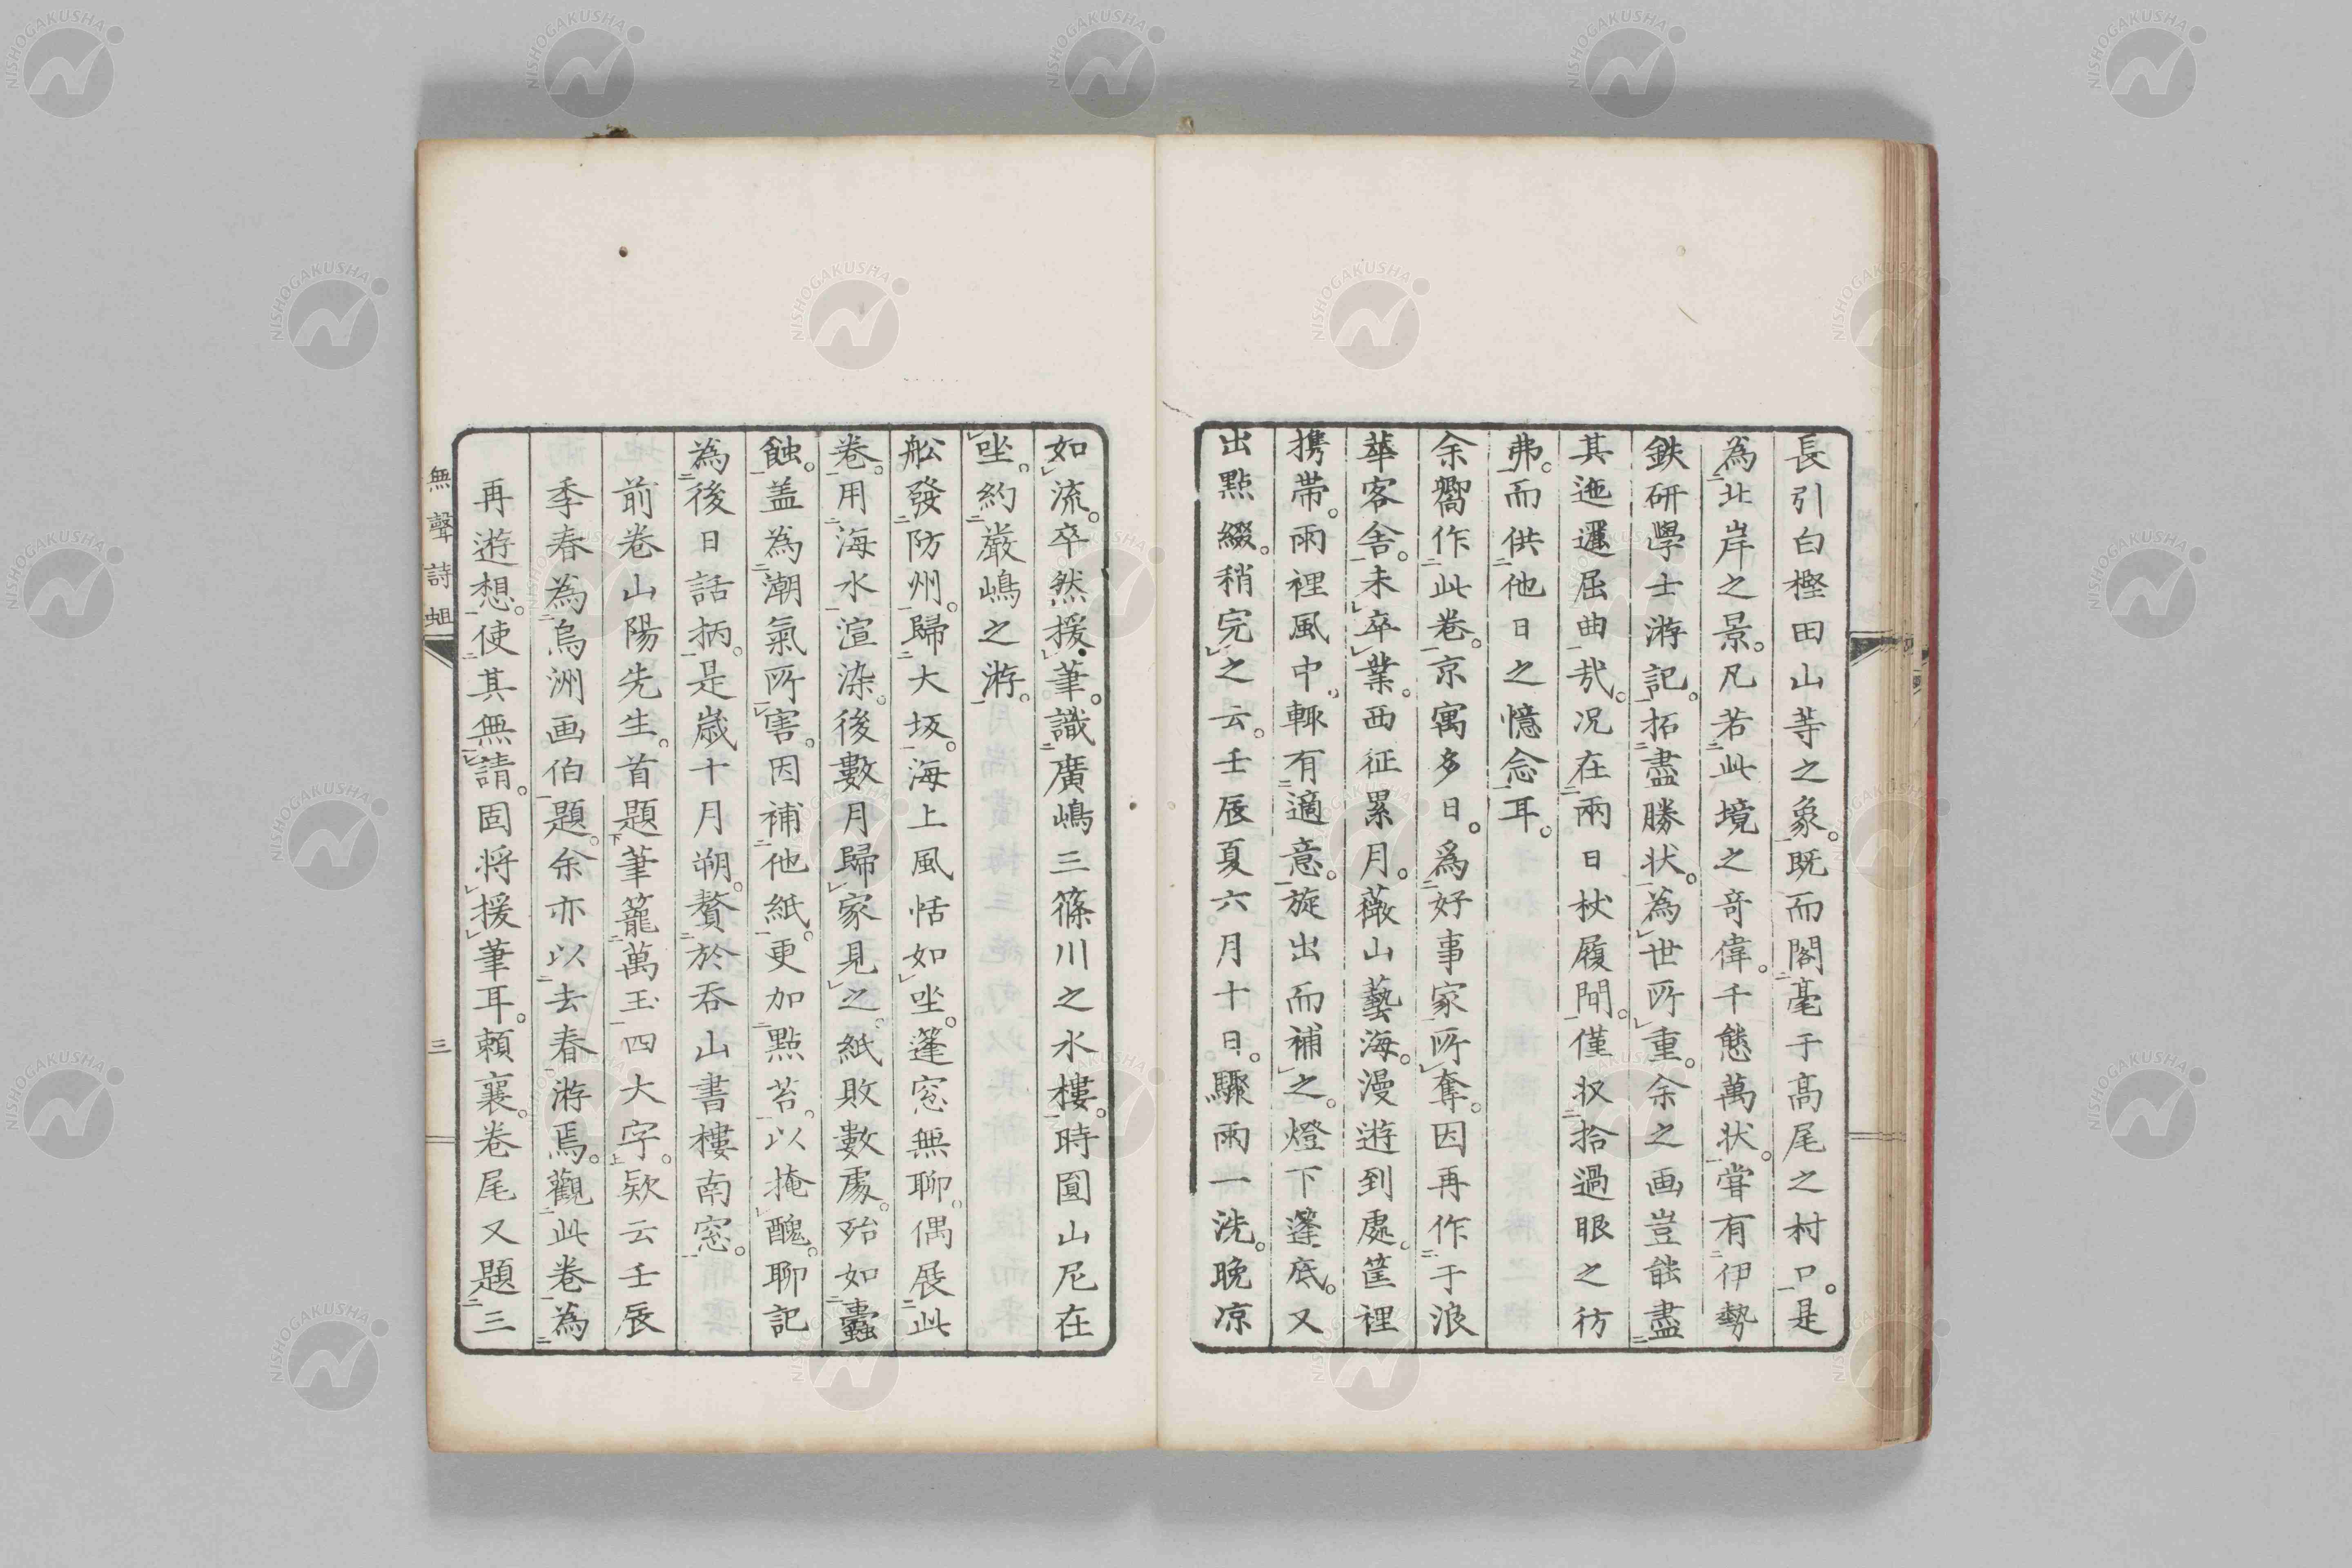 長引白樫田山等之象。既而閣毫于高尾之村口。是
為北岸之景。凡若此境之奇偉。千態萬状。嘗有伊勢
鉄研學士游記。拓盡勝状。為世所重。余之画豈能盡
其迤邐屈曲哉。况在兩日杖履間。僅収拾過眼之彷
弗。而供他日之憶念耳。
余嚮作此卷。京寓多日。爲好事家所奪。因再作于浪
華客舎。未卒業。西征累月。薇山藝海。漫遊到處。筐裡
携帶。雨裡風中。輙有適意。旋出而補之。燈下篷底。又
出點綴。稍完之云。壬辰夏六月十日。驟雨一洗。晩凉
如流。卒然援筆。識廣嶋三篠川之水樓。時圓山尼在
坐。約嚴嶋之游。
舩發防州。歸大坂。海上風恬如坐。篷窓無聊。偶展此
卷。用海水渲染。後數月歸家見之。紙敗數處。殆如蠹
蝕。盖為潮氣所害。因補他紙。更加點苔。以掩醜。聊記
為後日話柄。是歳十月朔。贅於呑山書樓南窓。
前卷山陽先生。首題筆籠萬玉四大字。欵云壬辰
季春為烏洲画伯題。余亦以去春游焉。觀此卷為
再遊想。使其無請。固将援筆耳。頼襄。卷尾又題三
無聲詩蛆
三
NISHOGAKUSHA